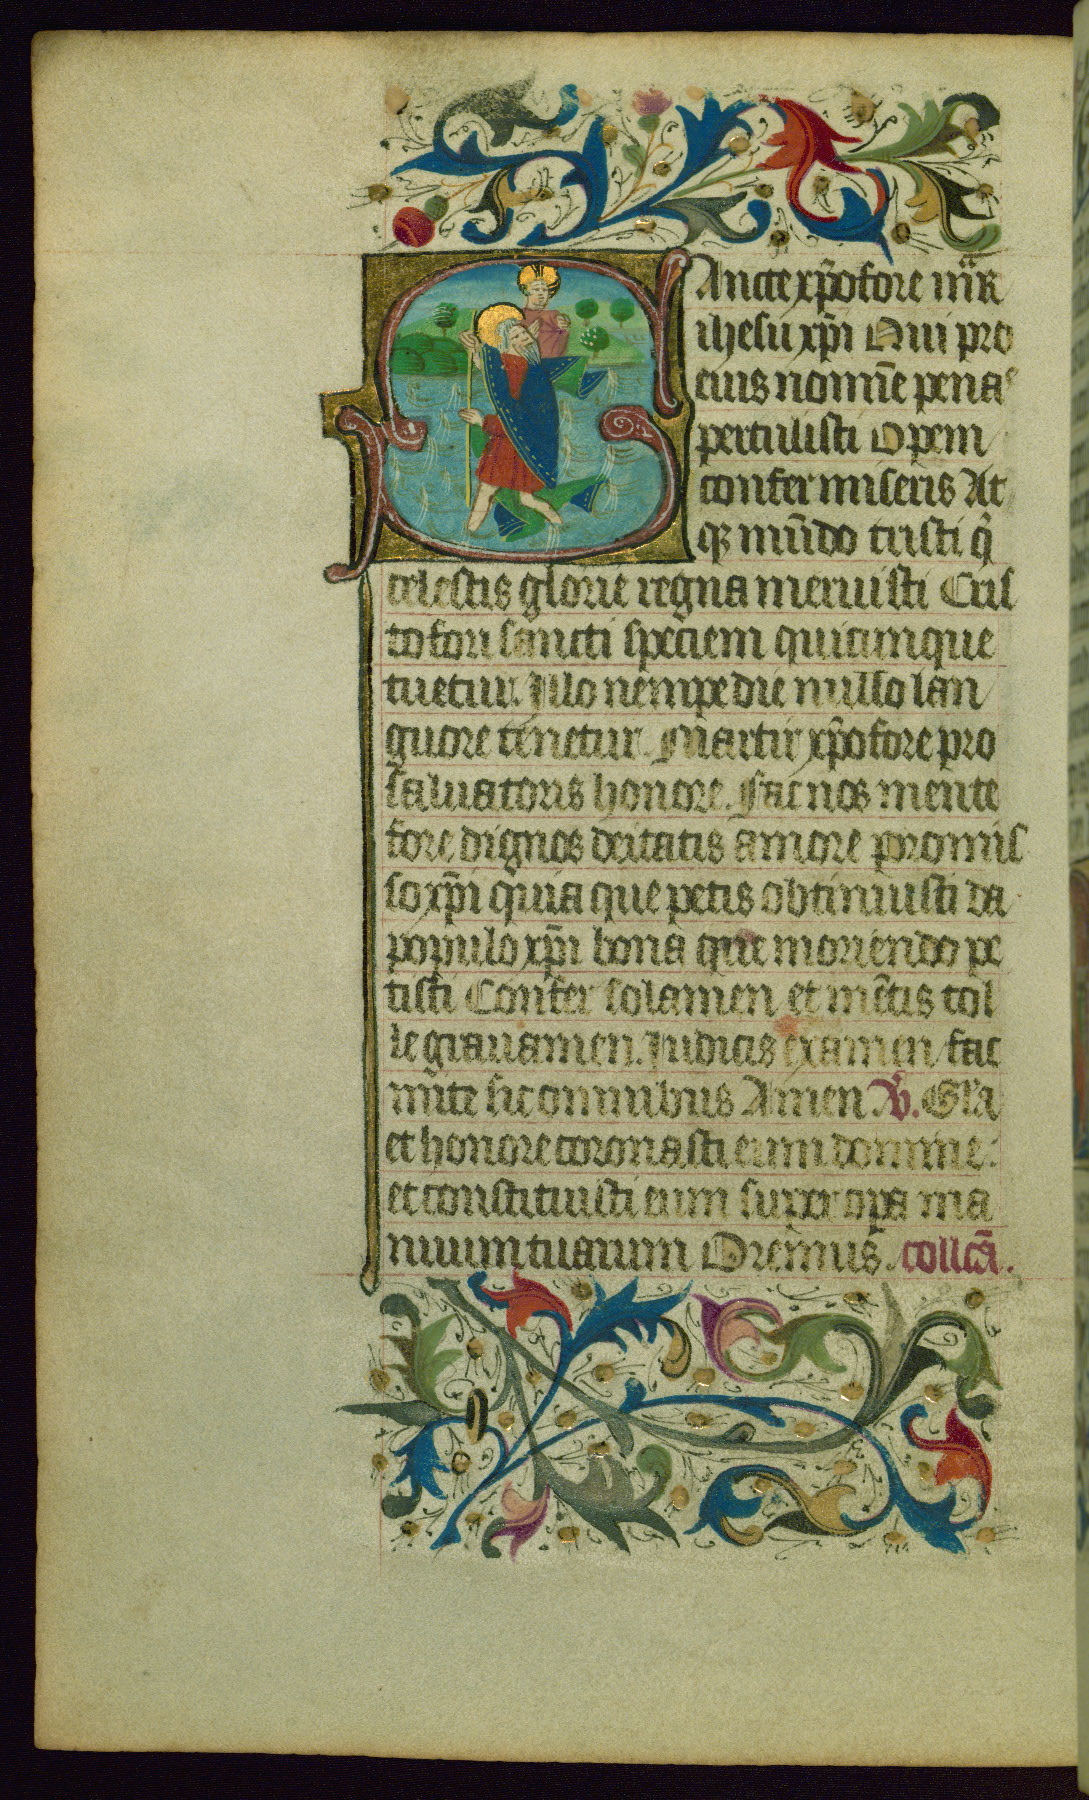 SAncte xp̄ofore mr̄
ihesu xp̄i Qui pro
eius nomīe pena
pertulisti Opem
confer miseris At
qꝫ mūdo tristi q̇
celestis glorie regna meruisti Cris
tofori sancti speciem quicunque
tuetur. Illo nempe die nullo lan
guore tenetur. Martir xp̄ofore pro
saluatoris honore. Fac nos mente
fore dignos deitatis amore promis
so xp̄i quia que petis obtinuisti da
populo xp̄i bona que moriendo pe
tisti Confer solamen et mētis tol
le grauamen. Iudicis examen fac
mite sit omnibus Amen V. Gl̄a
et honore coronasti eum domine.
et constituisti eum super opa ma
nuum tuarum Oremus. collcā.